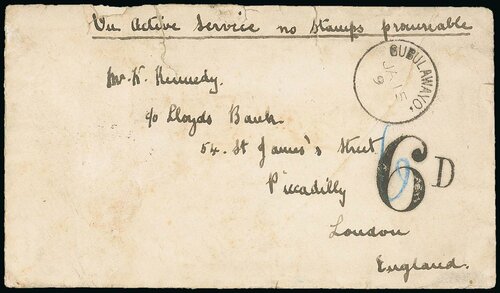 On Active Service no Stamps procurable
BUBULAWAYO.
JA 15
9
Mr. K. Kennedy.
c/o Lloyds Bank.
54. St James's Street
6D
Piccadilly
London
England.